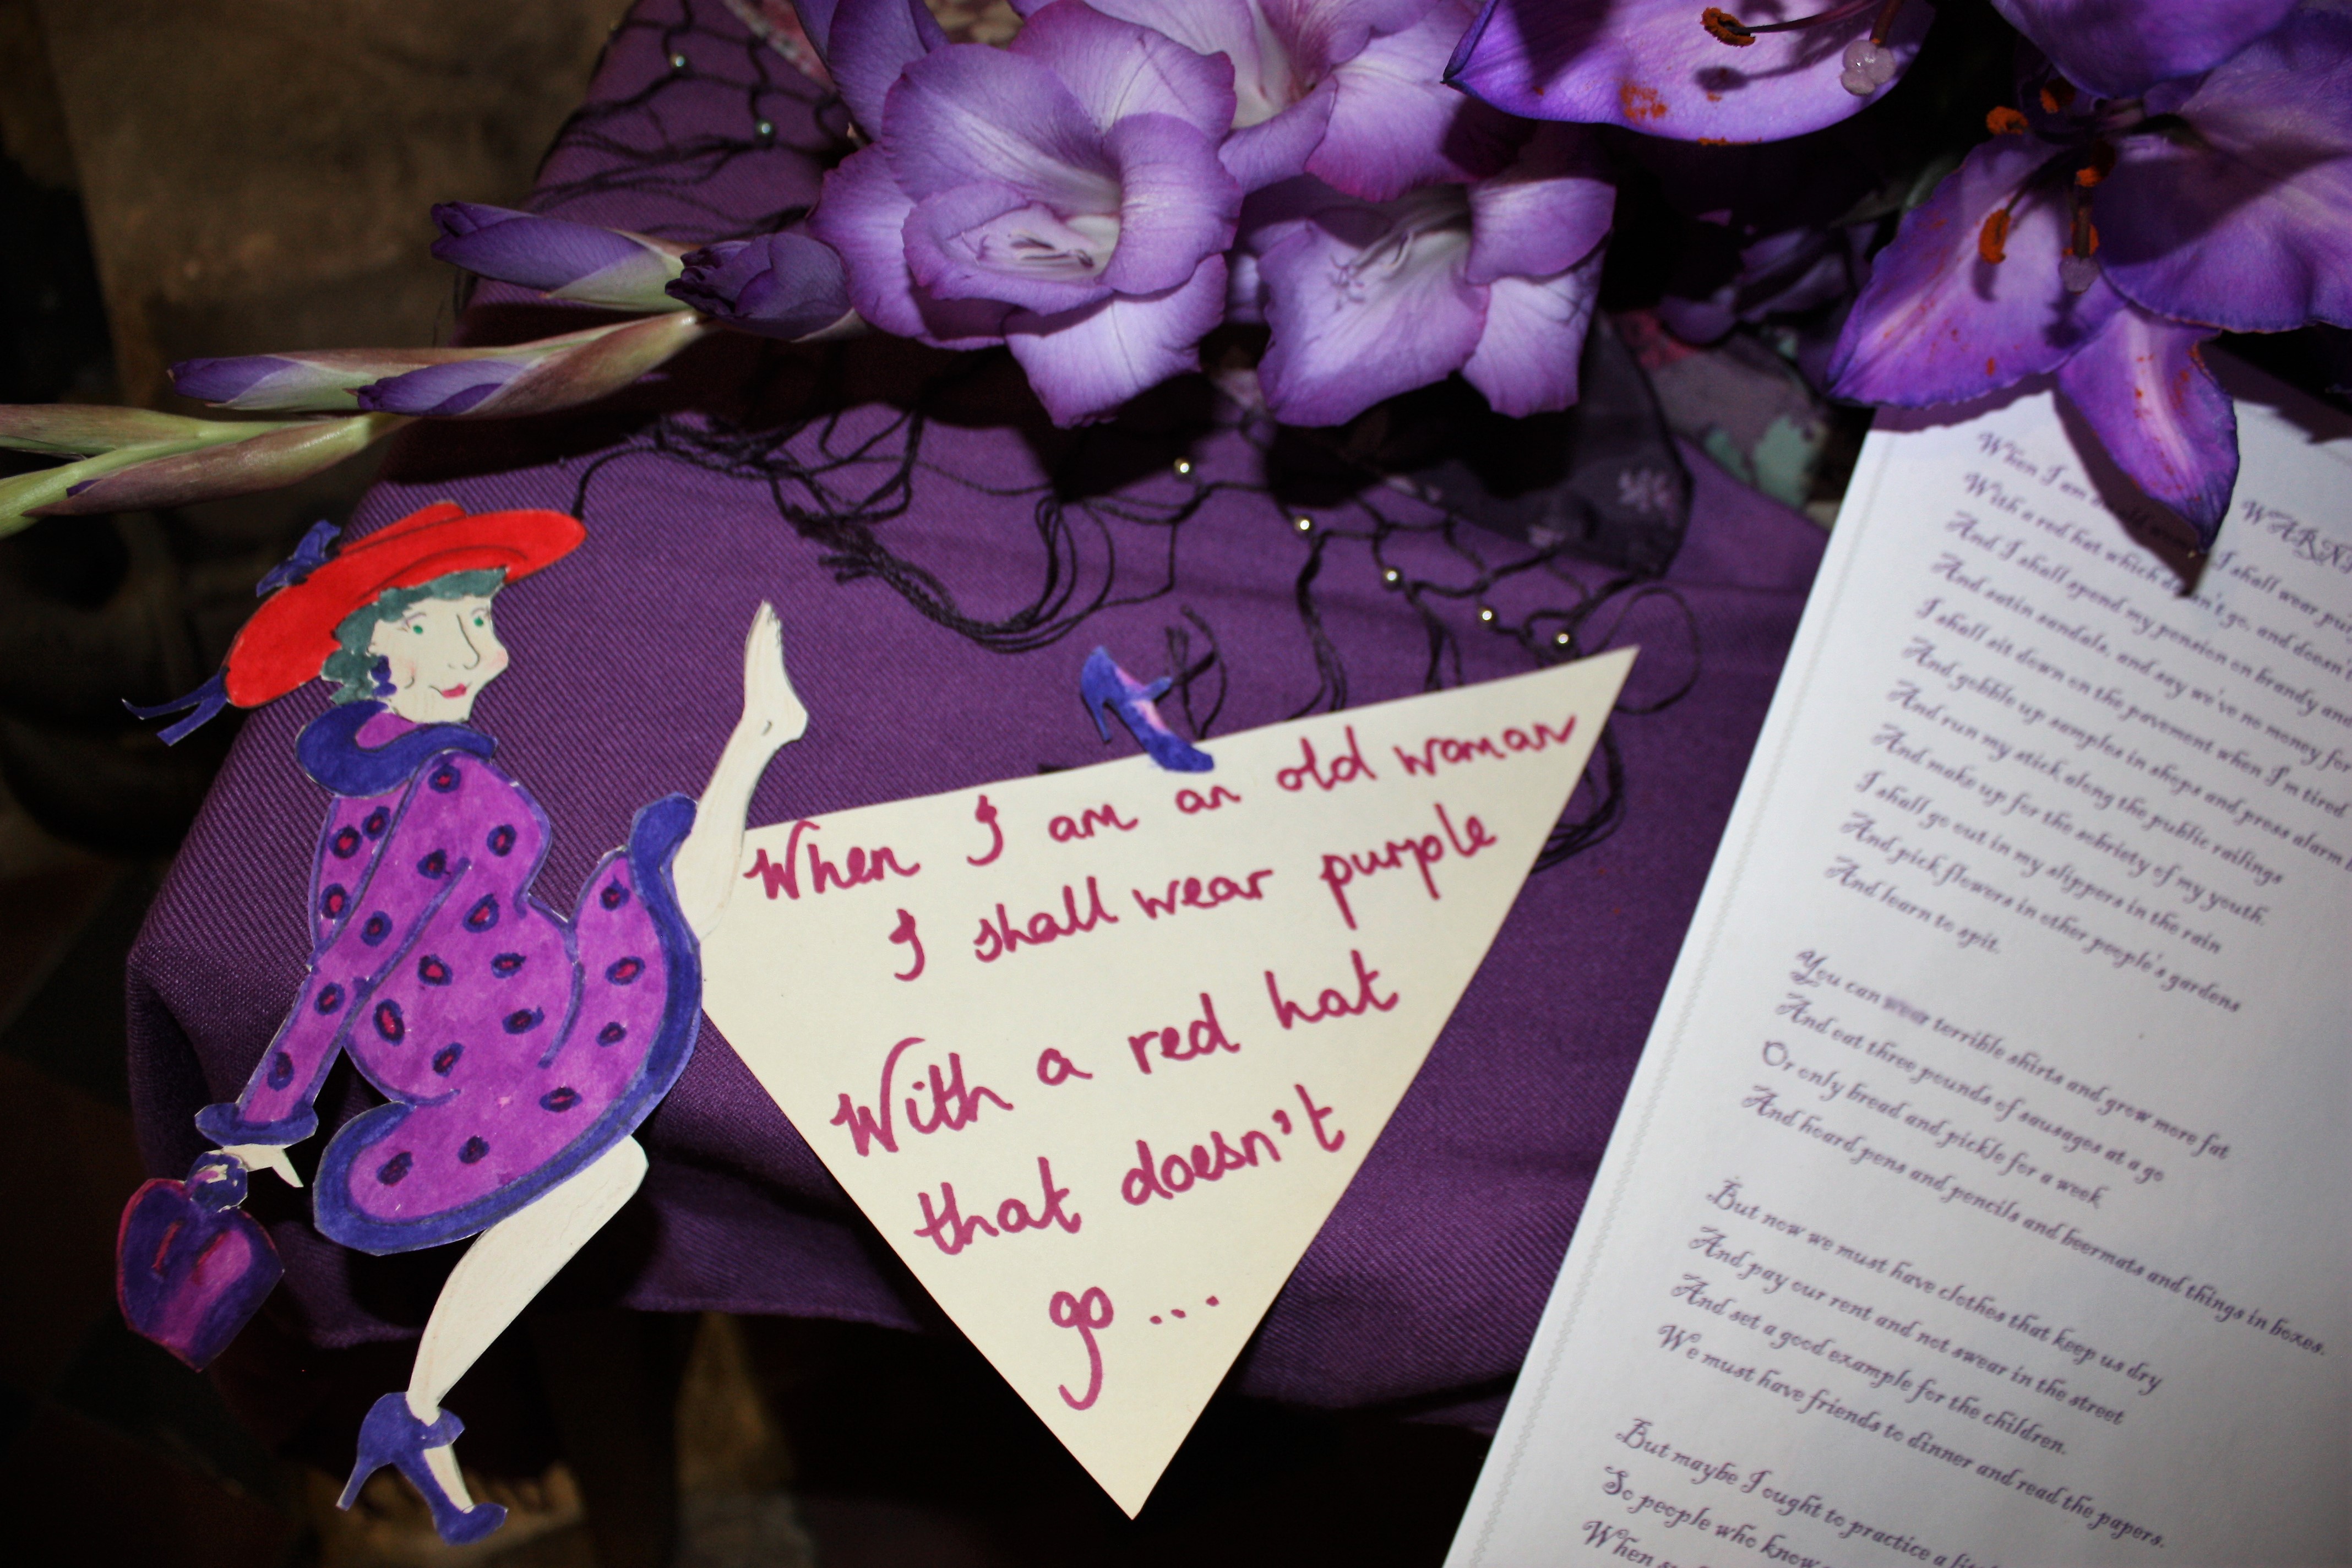 When I am an old woman
I shall wear purple
With a red hat
that doesn't
go ...
WARN
When I am I shall wear pur
With a red hat which doesn't go, and doesn't
And I shall spend my pension on brandy and
And satin sandals, and say we've no money for
I shall sit down on the pavement when I'm tired
And gobble up samples in shops and press alarm
And run my stick along the public railings
And make up for the sobriety of my youth.
I shall go out in my slippers in the rain
And pick flowers in other people's gardens
And learn to spit.
You can wear terrible shirts and grow more fat
And eat three pounds of sausages at a go
Or only bread and pickle for a week
And hoard pens and pencils and beermats and things in boxes.
But now we must have clothes that keep us dry
And pay our rent and not swear in the street
And set a good example for the children.
We must have friends to dinner and read the papers.
But maybe I ought to practice a
So people who know
When